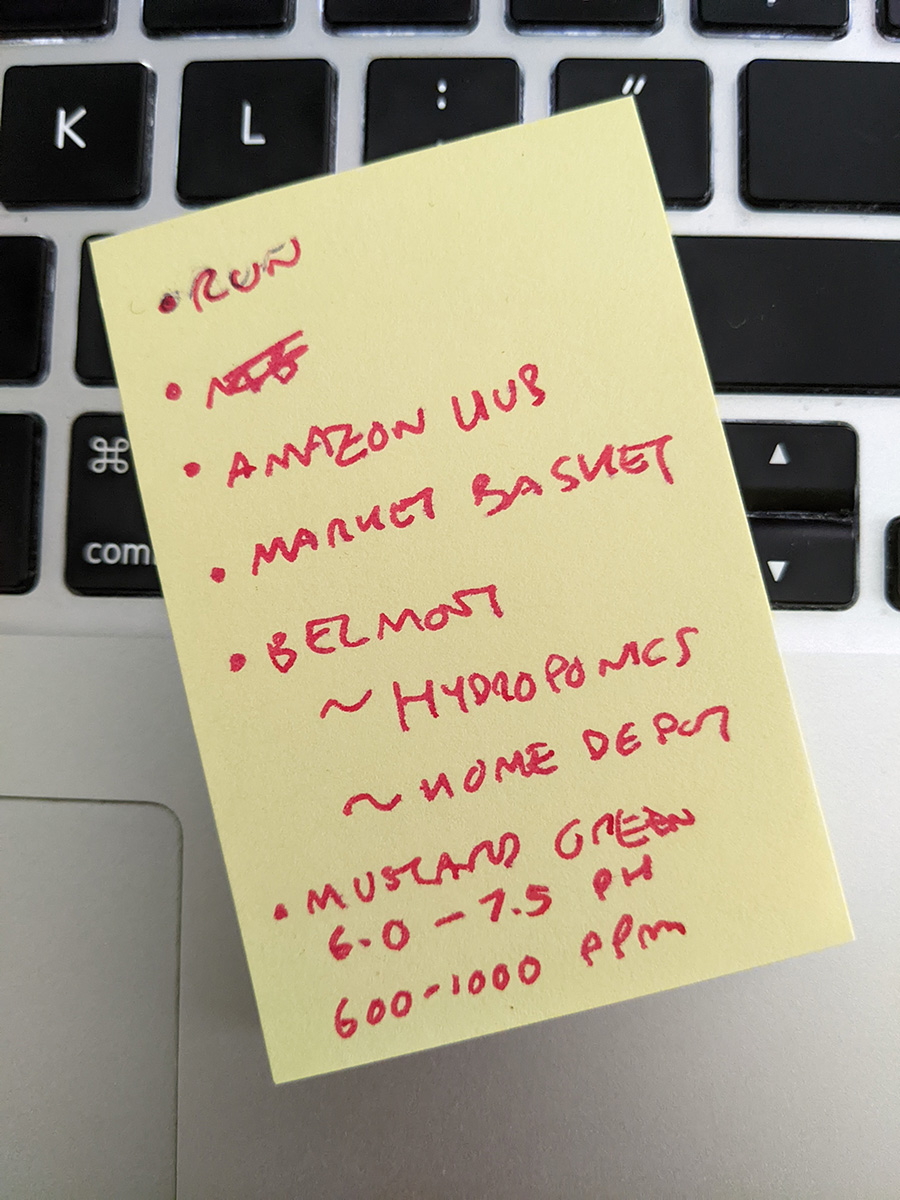 K
L
:
"
⌘
com
▲
▼
• RUN
•
• AMAZON HUB
• MARKET BASKET
• BELMONT
~ HYDROPONICS
~ HOME DEPOT
• MUSTARD GREEN
6.0 - 7.5 PH
600-1000 PPm